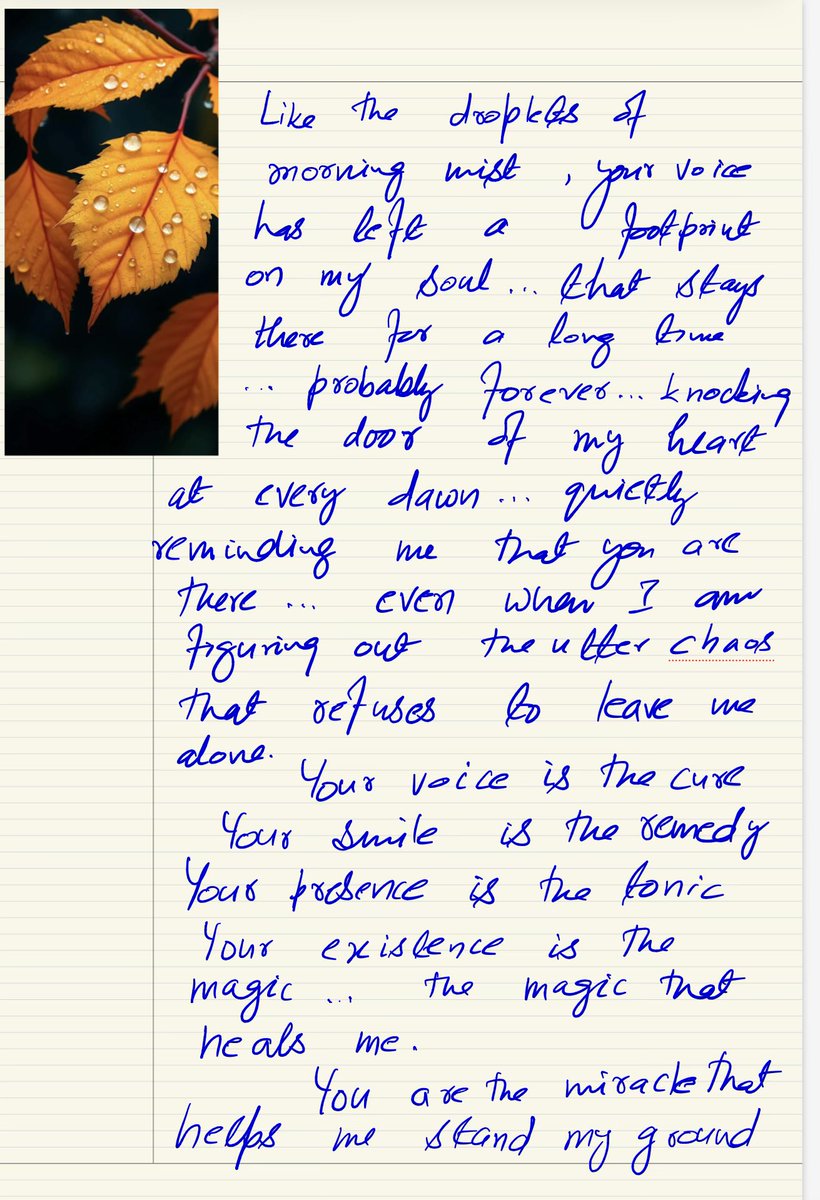 Like the droplets of
morning mist, your voice
has left a footprint
on my soul... that stays
there for a long time
... probably forever... knocking
the door of my heart
at every dawn... quietly
reminding me that you are
there... even when I am
figuring out the utter chaos
that refuses to leave me
alone.
Your voice is the cure
Your smile is the remedy
Your presence is the tonic
Your existence is the
magic... the magic that
heals me.
You are the miracle that
helps me stand my ground